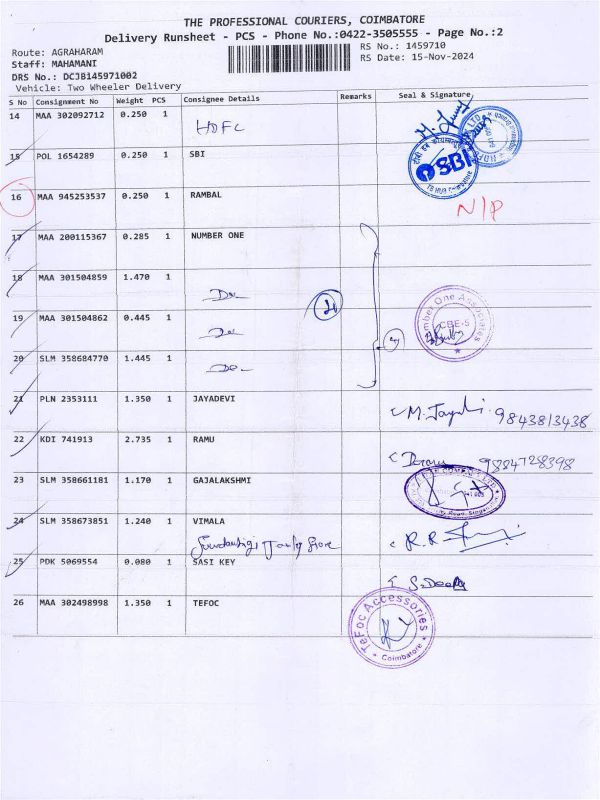 THE PROFESSIONAL COURIERS, COIMBATORE
Delivery Runsheet - PCS - Phone No.:0422-3505555 - Page No.:2
Route: AGRAHARAM
Staff: MAHAMANI
DRS No.: DCJB145971002
Vehicle: Two Wheeler Delivery
RS No.: 1459710
RS Date: 15-Nov-2024
S No Consignment No Weight PCS Consignee Details Remarks Seal & Signature
14 MAA 302092712 0.250 1 HDFC
15 POL 1654289 0.250 1 SBI
SBI
16 MAA 945253537 0.250 1 RAMBAL N/P
17 MAA 200115367 0.285 1 NUMBER ONE
18 MAA 301504859 1.470 1 Do
19 MAA 301504862 0.445 1 Do
Number One Associates
CBE-5
20 SLM 358684770 1.445 1 Do
21 PLN 2353111 1.350 1 JAYADEVI 9843813438
22 KDI 741913 2.735 1 RAMU 9884728398
23 SLM 358661181 1.170 1 GAJALAKSHMI
24 SLM 358673851 1.240 1 VIMALA
25 PDK 5069554 0.080 1 SASI KEY
26 MAA 302498998 1.350 1 TEFOC
TeFoc Accessories
Coimbatore